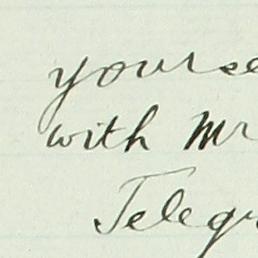 yourse
with Mr
Telegr